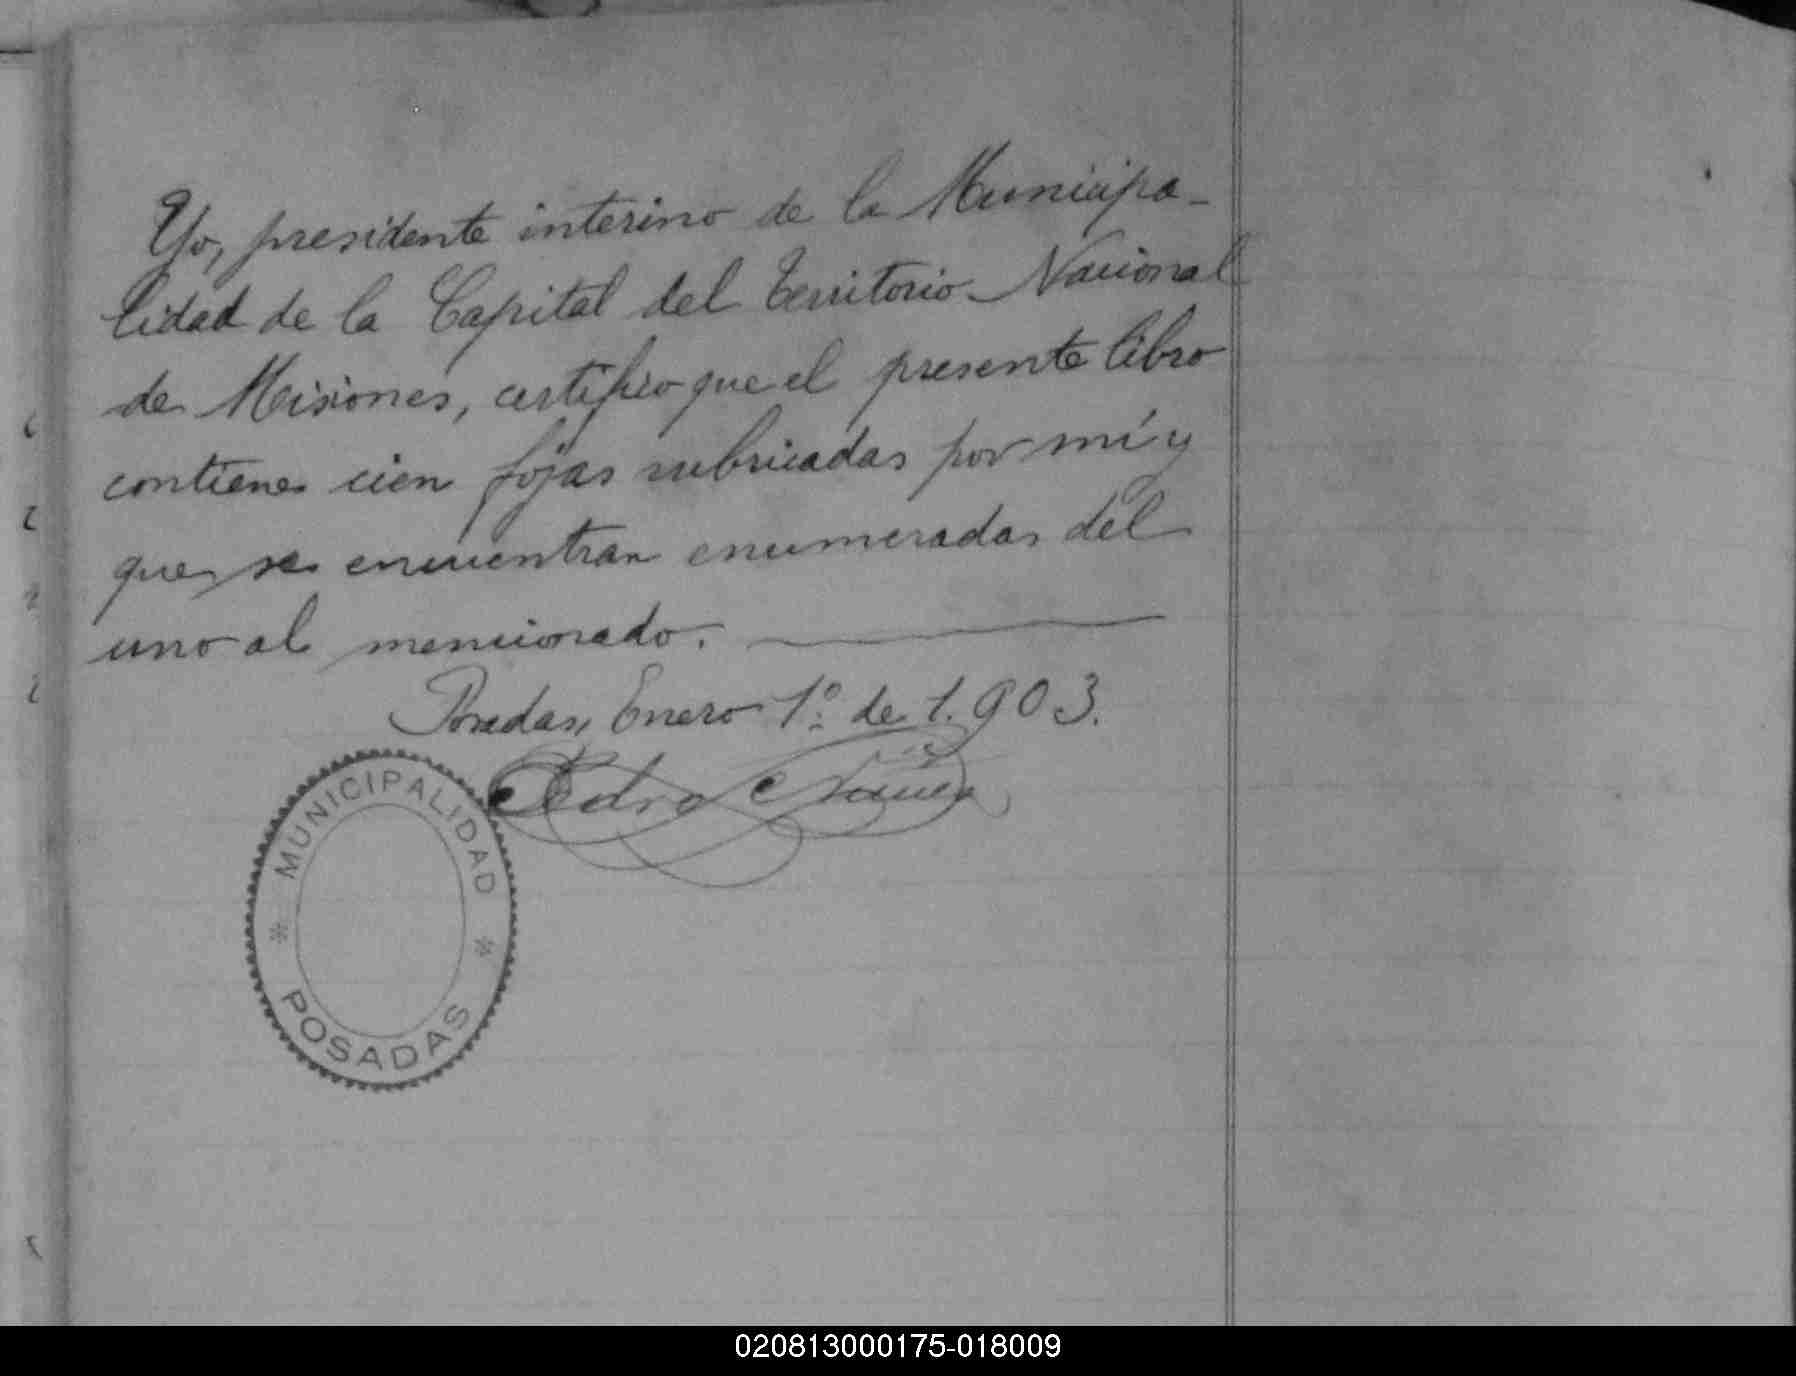 Yo, presidente interino de la Municipa-
lidad de la Capital del Territorio Nacional
de Misiones, certifico que el presente libro
contiene cien fojas rubricadas por mí y
que se encuentran enumeradas del
uno al mencionado.
Posadas, Enero 1º de 1.903.
Pedro Núñez
MUNICIPALIDAD
POSADAS
020813000175-018009